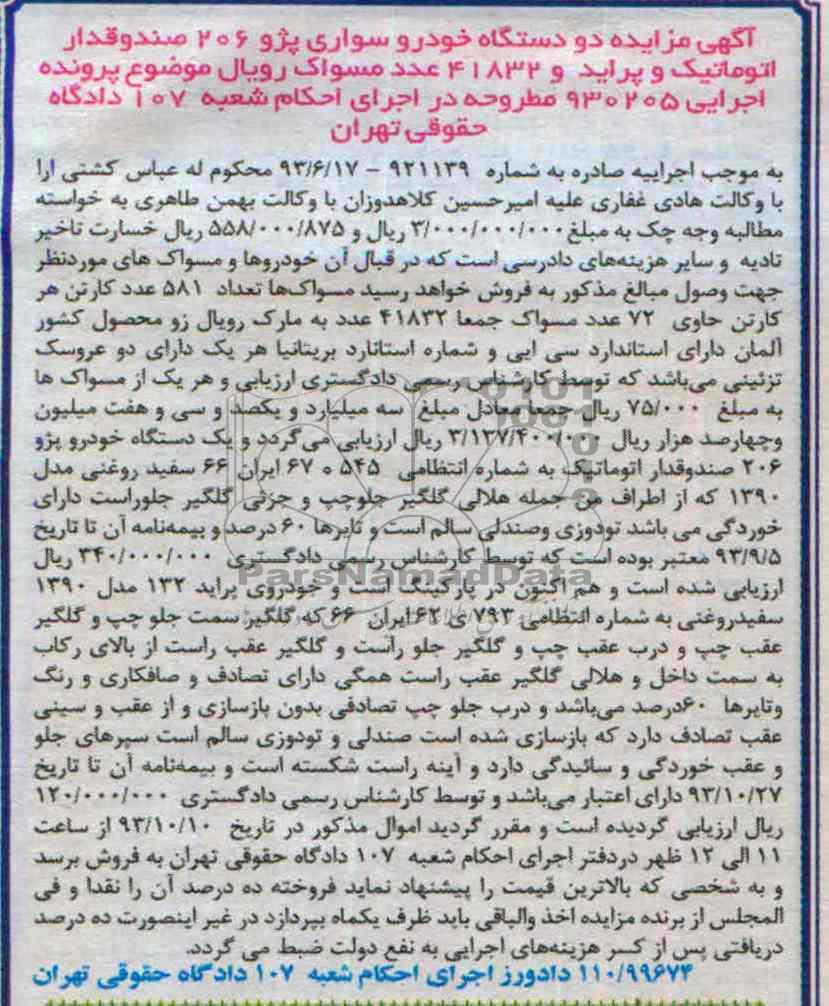 آگهی مزایده دو دستگاه خودرو سواری پژو ۲۰۶ صندوقدار
اتوماتیک و پراید و ۴۱۸۳۲ عدد مسواک رویال موضوع پرونده
اجرایی ۹۳۰۲۰۵ مطروحه در اجرای احکام شعبه ۱۰۷ دادگاه
حقوقی تهران
به موجب اجراییه صادره به شماره ۹۲۱۱۳۹ – ۹۳/۶/۱۷ محکوم له عباس کشتی ارا
با وکالت هادی غفاری علیه امیرحسین کلاهدوزان با وکالت بهمن طاهری به خواسته
مطالبه وجه چک به مبلغ ۳/۰۰۰/۰۰۰/۰۰۰ ریال و ۵۵۸/۰۰۰/۸۷۵ ریال خسارت تاخیر
تادیه و سایر هزینه‌های دادرسی است که در قبال آن خودروها و مسواک های موردنظر
جهت وصول مبالغ مذکور به فروش خواهد رسید مسواک‌ها تعداد ۵۸۱ عدد کارتن هر
کارتن حاوی ۷۲ عدد مسواک جمعا ۴۱۸۳۲ عدد به مارک رویال زو محصول کشور
آلمان دارای استاندارد سی ایی و شماره استانارد بریتانیا هر یک دارای دو عروسک
تزئینی می‌باشد که توسط کارشناس رسمی دادگستری ارزیابی و هر یک از مسواک ها
به مبلغ ۷۵/۰۰۰ ریال جمعا معادل مبلغ سه میلیارد و یکصد و سی و هفت میلیون
وچهارصد هزار ریال ۳/۱۳۷/۴۰۰/۰۰۰ ریال ارزیابی می‌گردد و یک دستگاه خودرو پژو
۲۰۶ صندوقدار اتوماتیک به شماره انتظامی ۵۴۵ ه ۶۷ ایران ۶۶ سفید روغنی مدل
۱۳۹۰ که از اطراف من جمله هلالی گلگیر جلوچپ و جزئی گلگیر جلوراست دارای
خوردگی می باشد تودوزی وصندلی سالم است و تایرها ۶۰ درصد و بیمه‌نامه آن تا تاریخ
۹۳/۹/۵ معتبر بوده است که توسط کارشناس رسمی دادگستری ۳۴۰/۰۰۰/۰۰۰ ریال
ارزیابی شده است و هم اکنون در پارکینگ است و خودروی پراید ۱۳۲ مدل ۱۳۹۰
سفیدروغنی به شماره انتظامی ۷۹۳ ی ۶۲ ایران ۶۶ که گلگیر سمت جلو چپ و گلگیر
عقب چپ و درب عقب چپ و گلگیر جلو راست و گلگیر عقب راست از بالای رکاب
به سمت داخل و هلالی گلگیر عقب راست همگی دارای تصادف و صافکاری و رنگ
وتایرها ۶۰درصد می‌باشد و درب جلو چپ تصادفی بدون بازسازی و از عقب و سینی
عقب تصادف دارد که بازسازی شده است صندلی و تودوزی سالم است سپرهای جلو
و عقب خوردگی و سائیدگی دارد و آینه راست شکسته است و بیمه‌نامه آن تا تاریخ
۹۳/۱۰/۲۷ دارای اعتبار می‌باشد و توسط کارشناس رسمی دادگستری ۱۲۰/۰۰۰/۰۰۰
ریال ارزیابی گردیده است و مقرر گردید اموال مذکور در تاریخ ۹۳/۱۰/۱۰ از ساعت
۱۱ الی ۱۲ ظهر دردفتر اجرای احکام شعبه ۱۰۷ دادگاه حقوقی تهران به فروش برسد
و به شخصی که بالاترین قیمت را پیشنهاد نماید فروخته ده درصد آن را نقدا و فی
المجلس از برنده مزایده اخذ والباقی باید ظرف یکماه بپردازد در غیر اینصورت ده درصد
دریافتی پس از کسر هزینه‌های اجرایی به نفع دولت ضبط می گردد.
۱۱۰/۹۹۶۷۴ دادورز اجرای احکام شعبه ۱۰۷ دادگاه حقوقی تهران
ParsNamadData